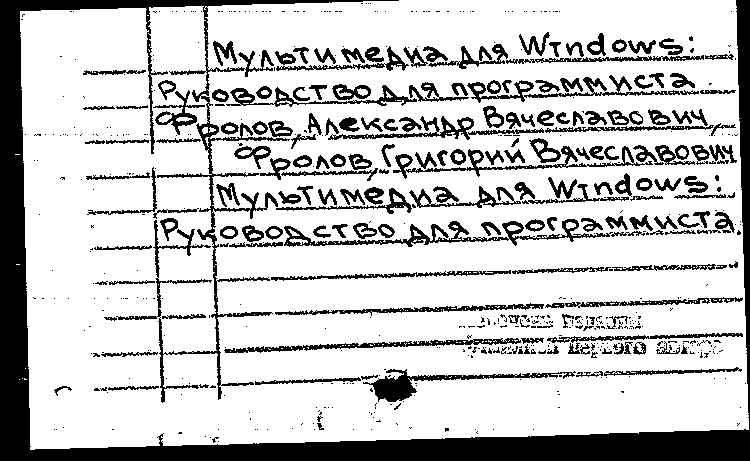 Мультимедиа для Windows:
Руководство для программиста.
Фролов, Александр Вячеславович,
Фролов, Григорий Вячеславович
Мультимедиа для Windows:
Руководство для программиста.
первого автора